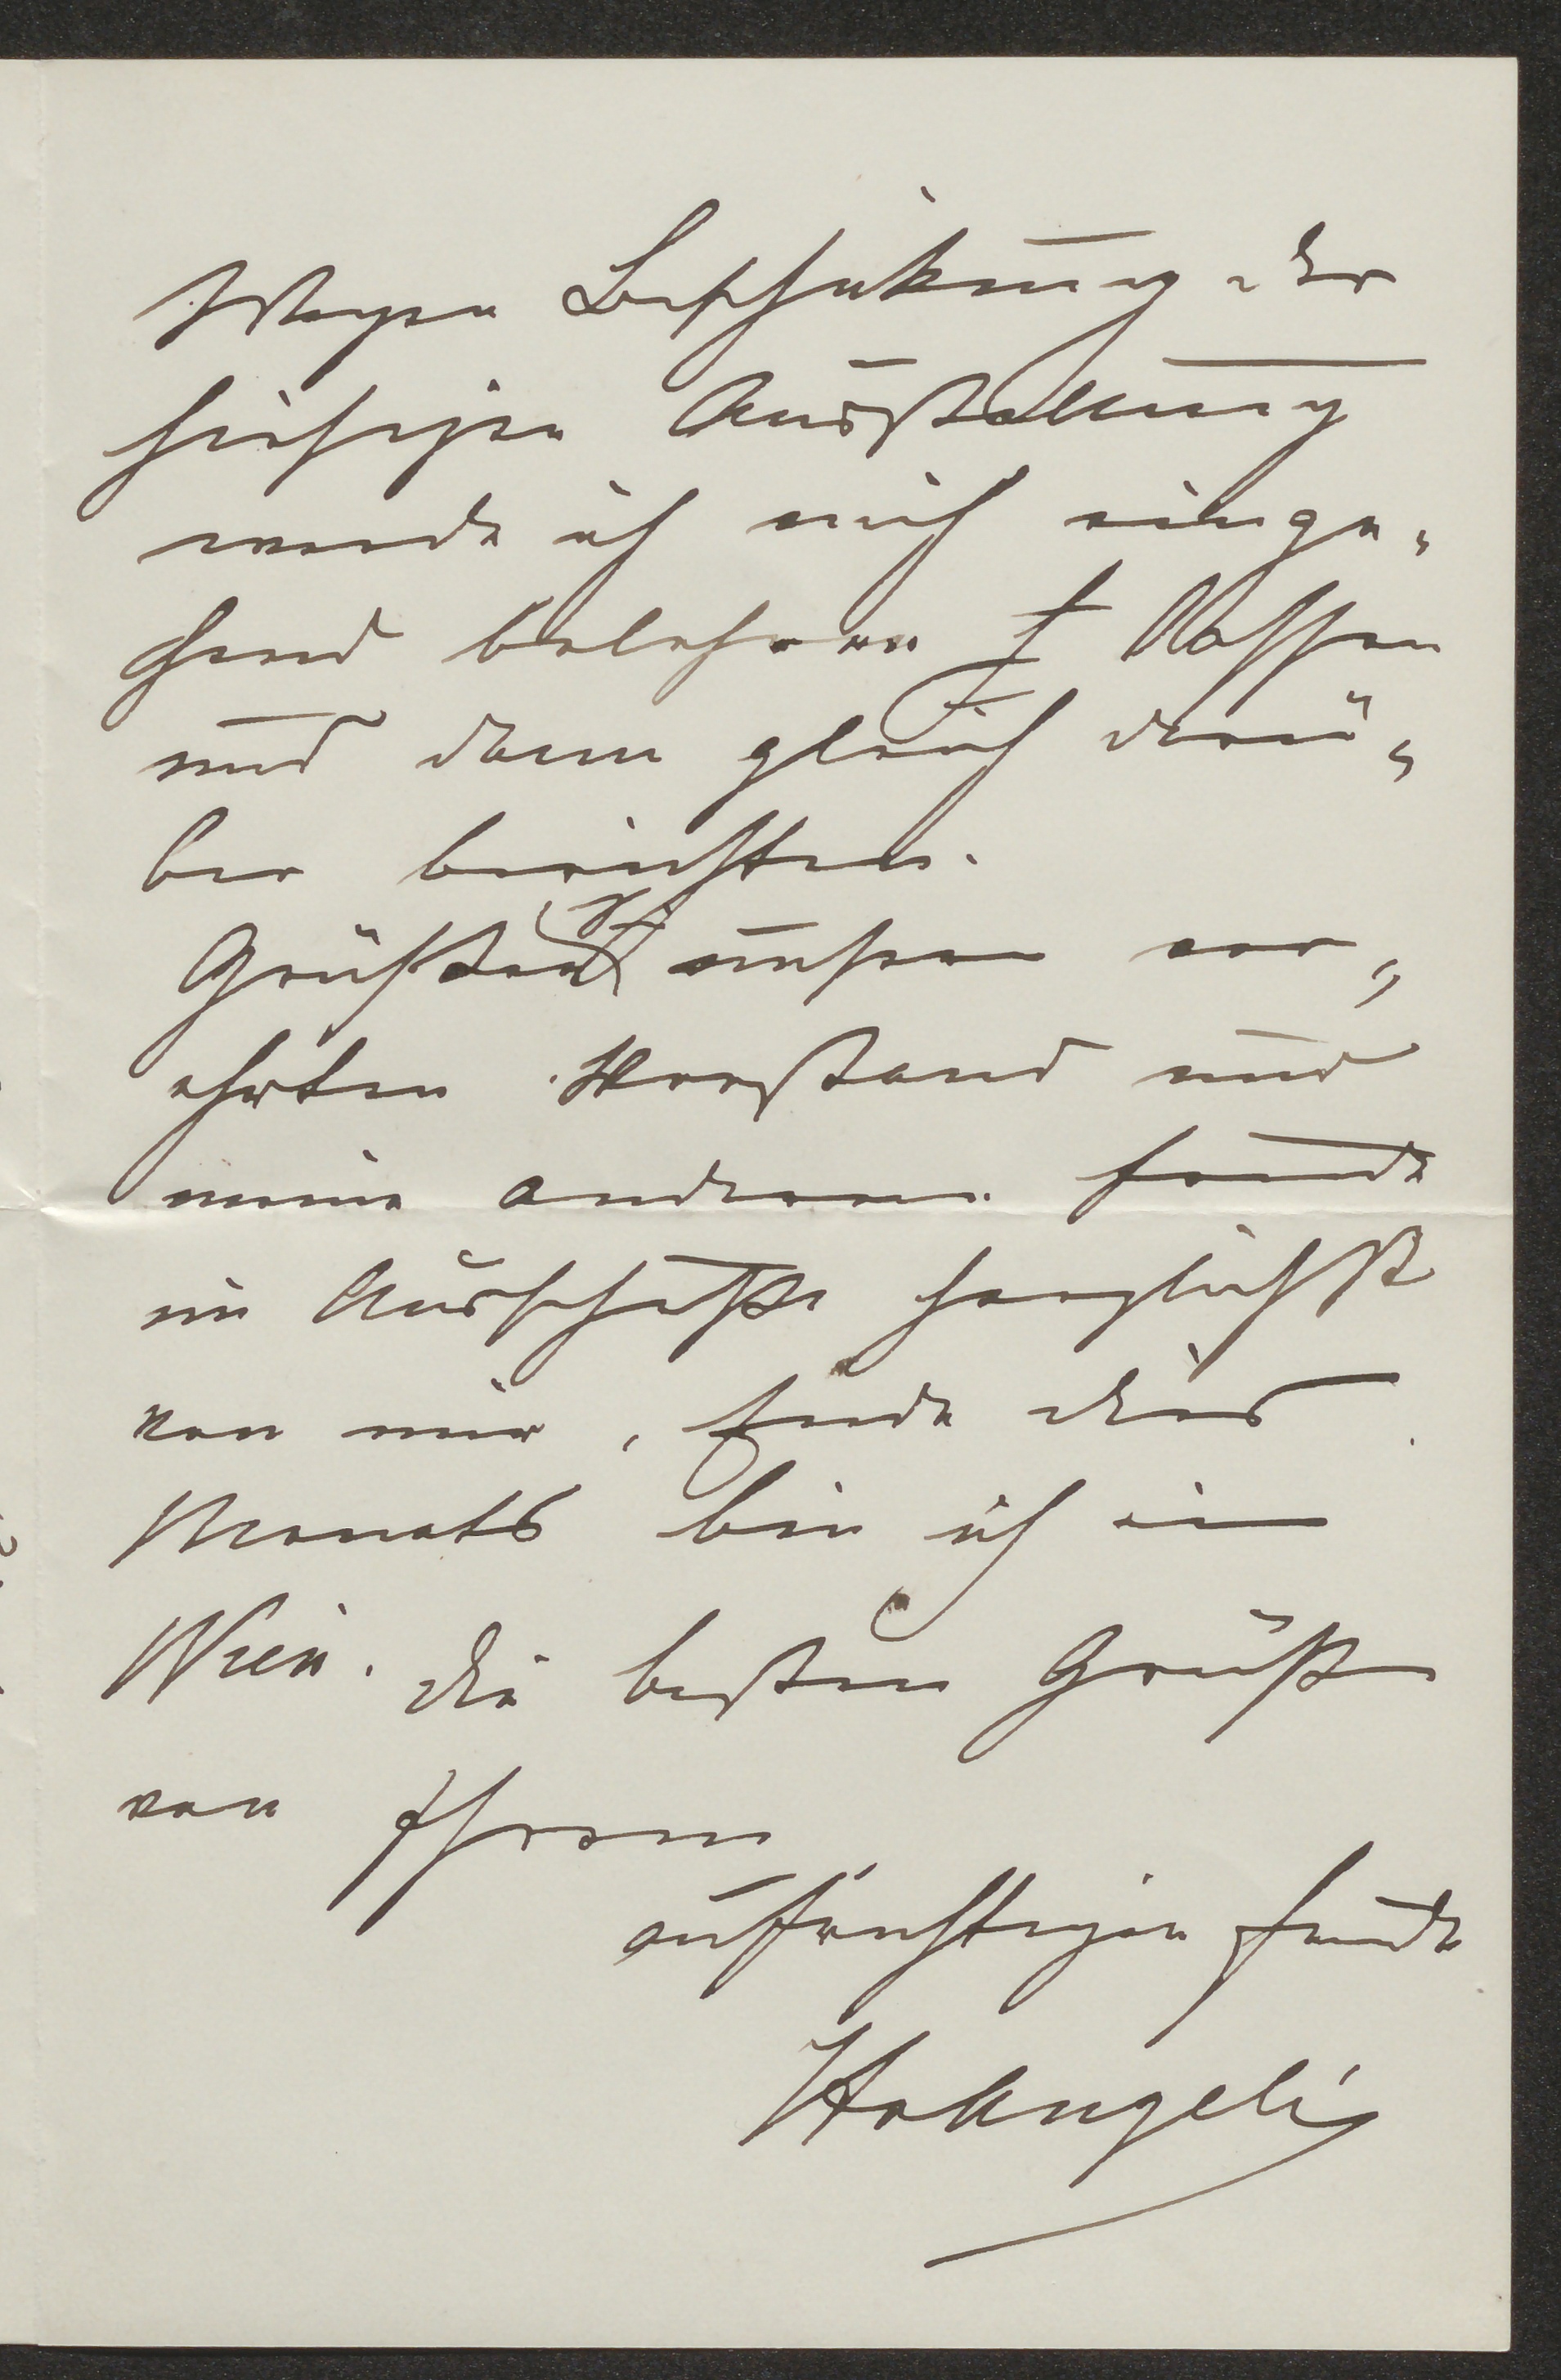 Wegen Beschikung der
hiesigen Ausstellung
werde ich mich einge„
hend belehren lassen
und dann gleich darü„
ber berichten.
Grüßen Sie unseren ver„
ehrten Vorstand und
meine anderen Freunde
im Ausschuße herzlichst
von mir, Ende dies
Monats bin ich in
Wien. Die besten Grüße
von Ihrem
aufrichtigen Freunde
HvAngeli